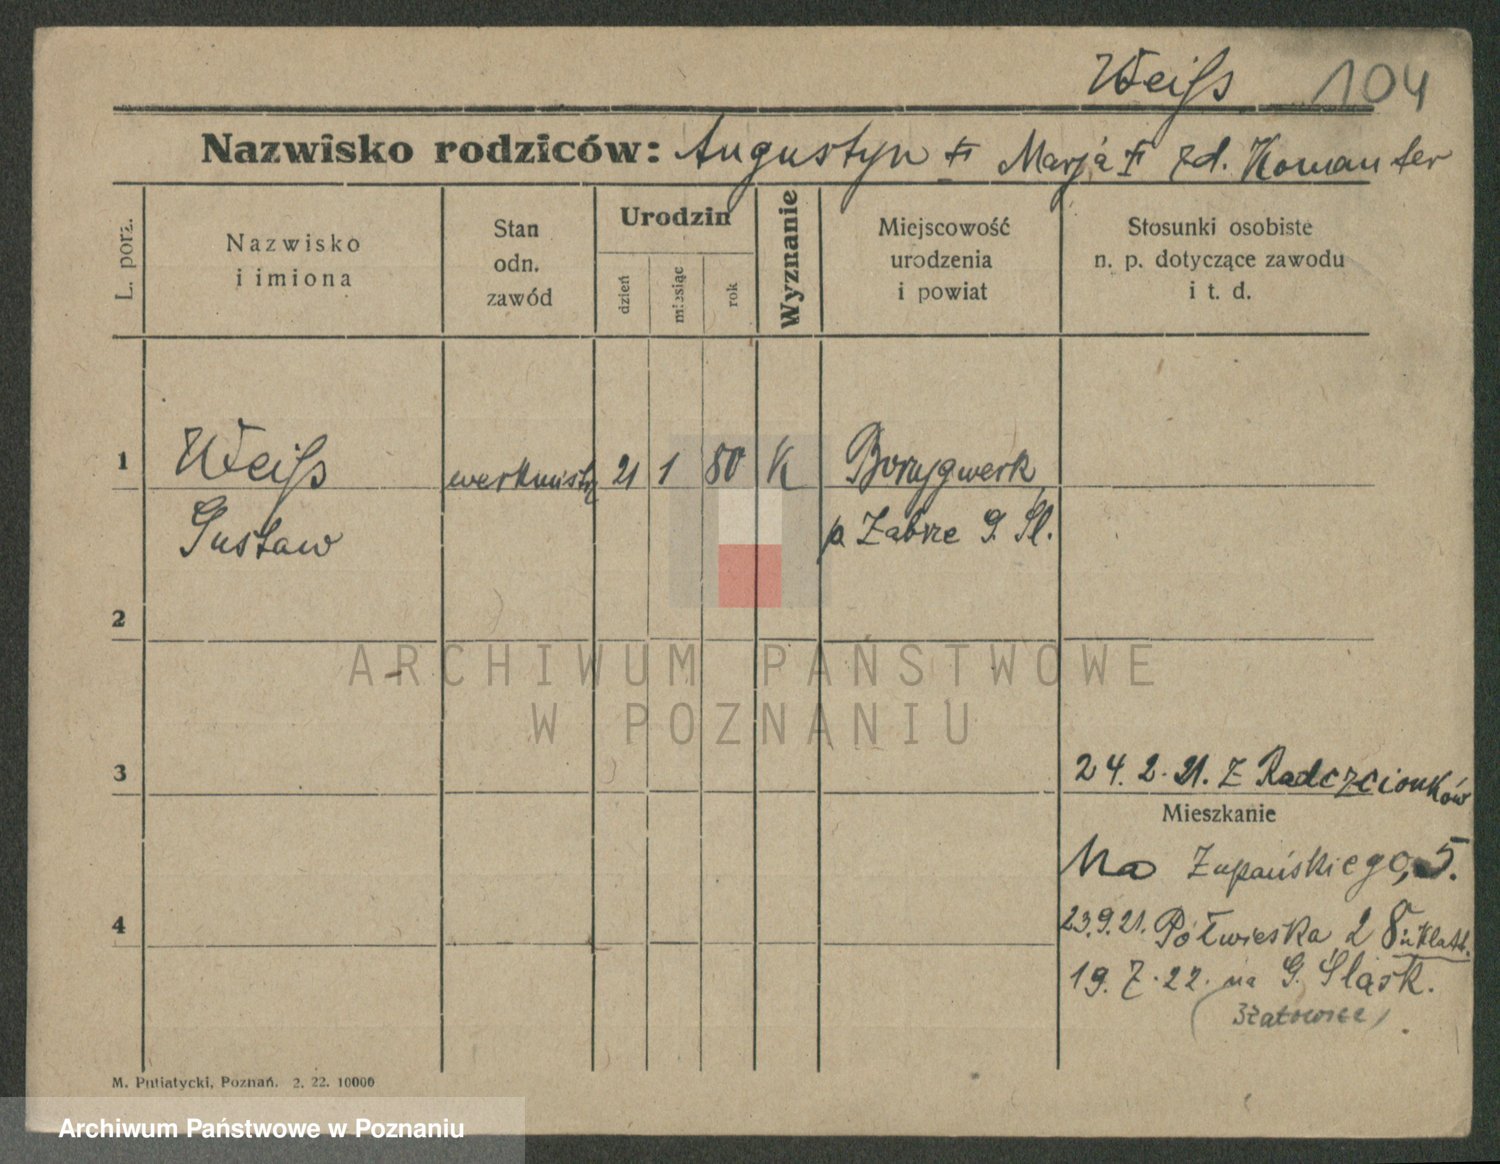 Weiſs 104
Nazwisko rodziców: Augustyn Marja zd. Komander
L. porz.
Nazwisko
i imiona
Stan
odn.
zawód
Urodzin
dzień
miesiąc
rok
Wyznanie
Miejscowość
urodzenia
i powiat
Stosunki osobiste
n. p. dotyczące zawodu
i t. d.
1
Weiſs werkmistrz 21 1 80 K Borsygwerk
Gustaw p Zabrze G. Śl.
2
3
24. 2. 21. z Radczcionków
Mieszkanie
Na Zupańskiego, 5.
4
23.9.21. Półwieska 2
19. 7. 22. na G. Śląsk.
M. Putiatycki, Poznań. 2. 22. 10000
ARCHIWUM PAŃSTWOWE
W POZNANIU
Archiwum Państwowe w Poznaniu